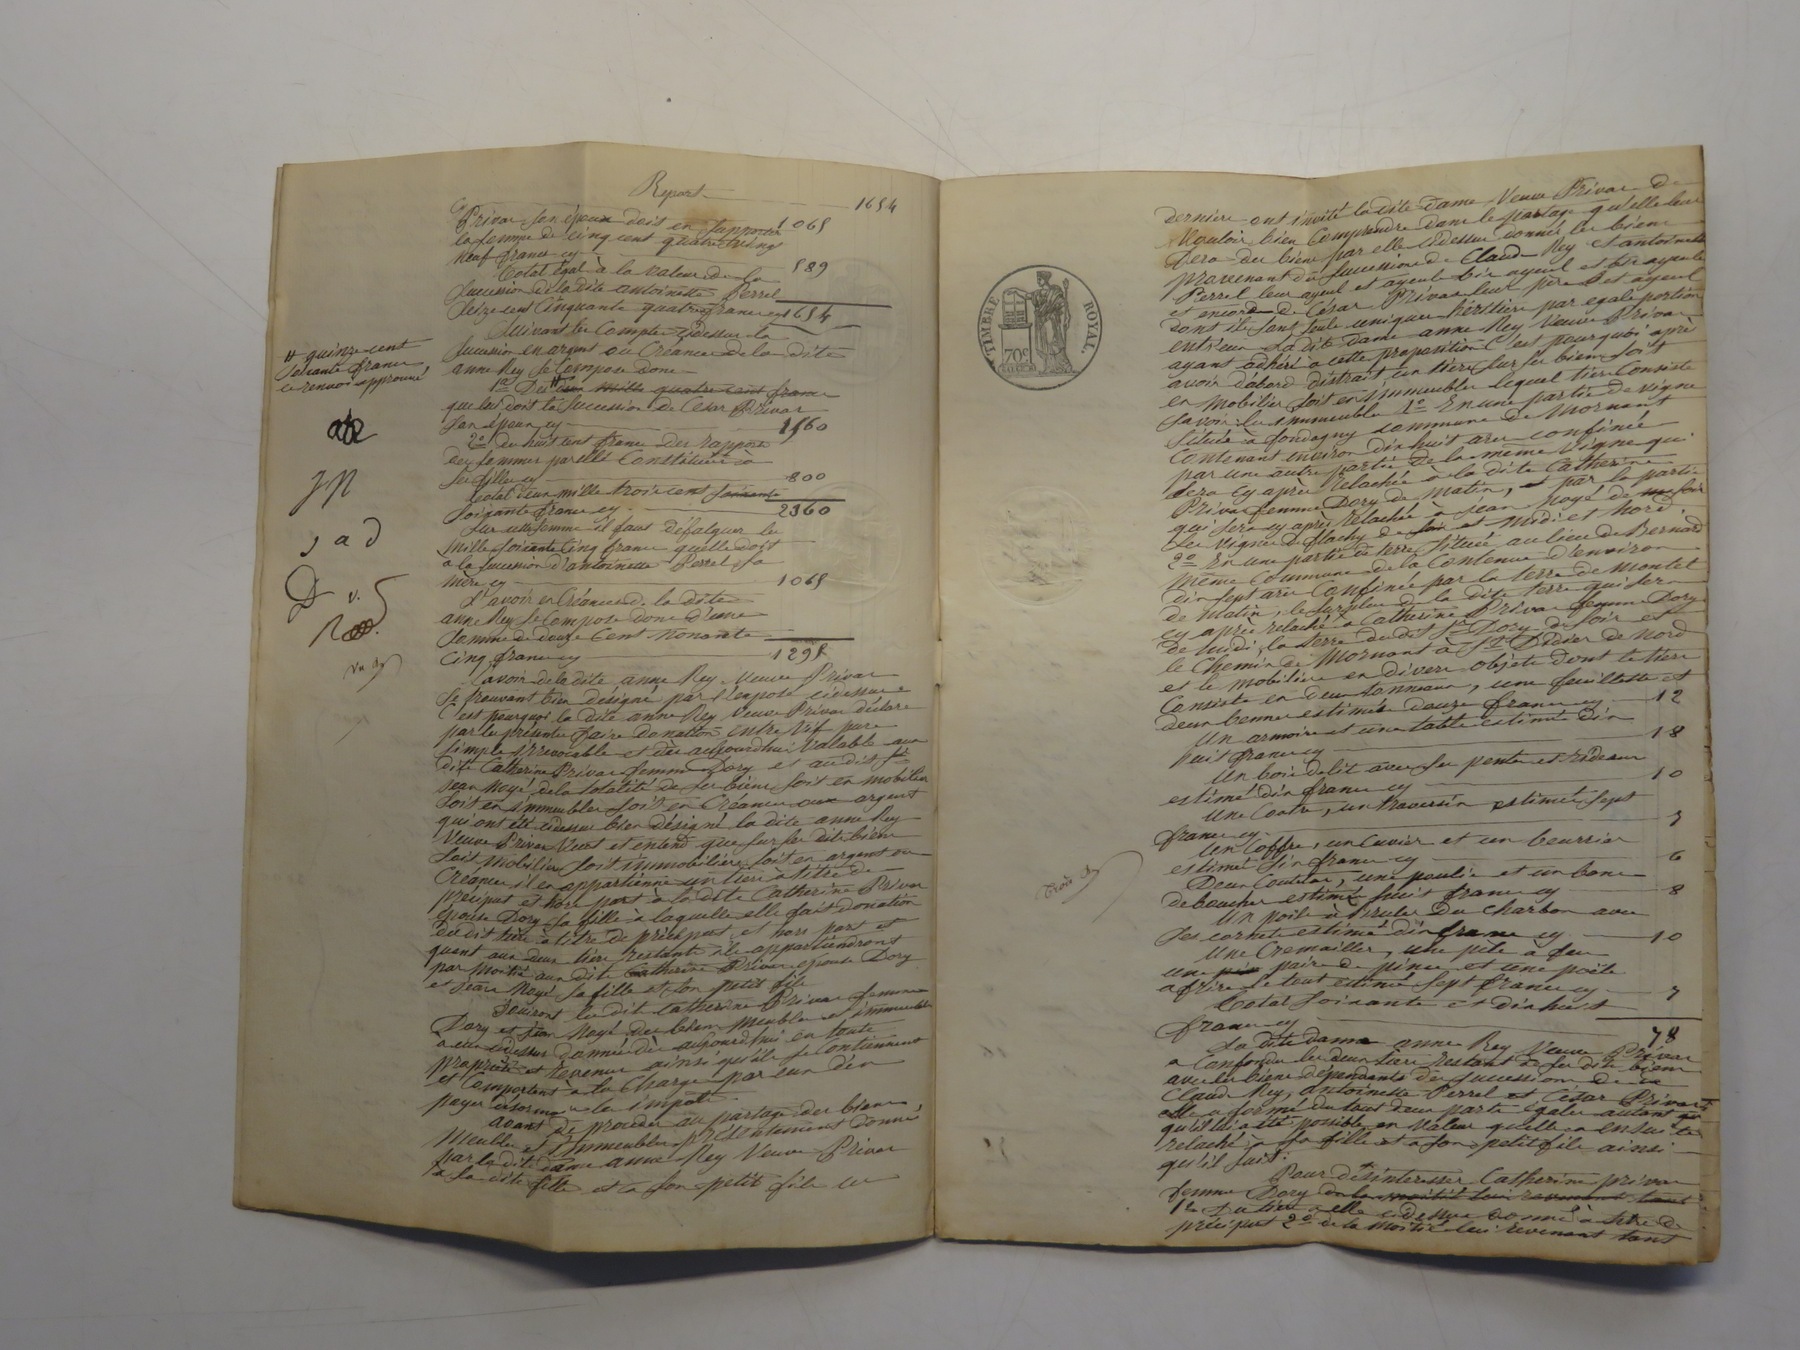 Report 1654
Privar son époux doit en rapporter 1065
la somme de cinq cent quatre vingt
neuf francs cy 589
Total égal à la valeur de la
succession de la dite antoinette Perrel
Seize cent Cinquante quatre francs cy 1654
Suivant les Comptes cidessus la
succession en argent ou Créances de la dite
anne Rey se Compose donc
1º De mille quatre cent francs
que lui doit la succession de César Privar
son époux cy 1560
2º de huit cent francs des rapports
des sommes par elle Constituée à
sa fille cy 800
total deux mille trois cent soixante
soixante francs cy 2360
Sur cette somme il faut défalquer les
mille soixante cinq francs quelle doit
a la succession d'antoinette Perrel sa
mère cy 1065
L'avoir en Créances de la dite
anne Rey se Compose donc d'une
somme de douze Cent nonante
cinq francs cy 1295
L'avoir de la dite anne Rey Veuve Privar
se trouvant bien désigné par l'exposé cidessus
C'est pourquoi la dite anne Rey Veuve Privar déclare
par les présentes faire donation entre vif pure
simple irrévocable et dès aujourdhui Valable aux
dite Catherine Privar femme Dory et audit
jean Noyé de la totalité de ses biens soit en mobilier
soit en immeubles soit en Créances ou argent
qui ont été cidessus bien désigné la dite anne Rey
Veuve Privar Veut et entend que sur ses dits biens
soit mobiliers soit immobiliers soit en argent ou
Créances il en appartienne un tiers à titre de
préciput et hors part a la dite Catherine Privar
épouse Dory sa fille à laquelle elle fait donation
du dit tiers à titre de préciput et hors part et
quant aux deux tiers restants ils appartiendront
par moitié aux dits Catherine Privar épouse Dory
et jean Noyé sa fille et son petit fils
Jouiront les dits Catherine Privar femme
Dory et jean Noyé des biens meubles et immeubles
a eux cidessus donnés dès aujourdhui en toute
propriété et revenus ainsi qu'ils se Contiennent
et Comportent à la Charge par eux d'en
payer désormais les impots
avant de procéder au partage des biens
Meubles et immeubles présentement donnés
par la dite dame anne Rey Veuve Privar
à sa dite fille et a son petit fils ces
# quinze cent
soixante francs
ce renvoi approuvé
J N
J a D
D v.
TIMBRE ROYAL.
70c
dernière ont invité la dite dame Veuve Privar de
Vouloir bien Comprendre dans le partage qu'elle leur
fera des biens par elle cidessus donnés les biens
provenant des successions de Claud Rey et antoinette
Perrel leur ayeul et ayeule bis ayeul et bis ayeule
et encore de César Privar leur père et ayeul
dont ils sont seuls uniques héritiers par égale portion
entr'eux la dite dame anne Rey Veuve Privar
ayant adhéré a cette proposition C'est pourquoi après
avoir dabord distrait un tiers sur ses biens soit
en mobilier soit en immeubles lequel tiers Consiste
savoir les immeubles 1º En une partie de vigne
située à fondagny commune de Mornant
Contenant environ dix huit ares confinée
par une autre partie de la même vigne qui
sera cy après relachée à la dite Catherine
Privar femme Dory de matin, et par la partie
qui sera cy après relachée a jean Noyé de soir
les vignes de flachy de midi et nord.
2º En une partie de terre située au lieu de Bernard
même Commune de la Contenue d'environ
dix sept ares Confinée par la terre de Montet
de matin, le surplus de la dite terre qui sera
cy après relaché a Catherine Privar femme Dory
de midi, la terre du dit Sr Dory de soir et
le Chemin de Mornant à St Didier de Nord
et le mobilier en divers objets dont le tiers
Consiste en deux tonneaux, une feuillette et
deux bennes estimés douze francs cy 12
Un armoire et une table estimé dix
huit francs cy 18
Un bois de lit avec ses pente et rideaux
estimé dix francs cy 10
Une Couverte, un traversin estimés sept
francs cy 7
Un Coffre, un Cuvier et un beurrier
estimé six francs cy 6
Deux Couteaux, une poulie et un banc
de boucher estimé huit francs cy 8
Un poile à Bruler du Charbon avec
ses cornets estimé dix francs cy 10
Une Cremailler, une pile à feu
une paire de pince et une poële
a frire le tout estimé sept francs cy 7
Total Soixante et dix huit
francs cy 78
La dite dame anne Rey Veuve Privar
a Confondu les deux tiers restant de ses dits biens
avec les biens dépendants des successions de
Claud Rey, antoinette Perrel et César Privar
elle a formé du tout deux parts égales autant
qu'il lui a été possible en valeur quelle a ensuite
relaché à sa fille et a son petit fils ainsi
qu'il suit.
Pour désintéresser Catherine privar
femme Dory de la moitié lui revenant tant
1º du tiers a elle cidessus donné à titre de
préciput 2º de la moitié lui revenant tant